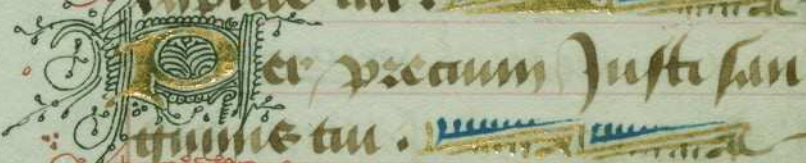 Per precium Justi san
guinis tui .